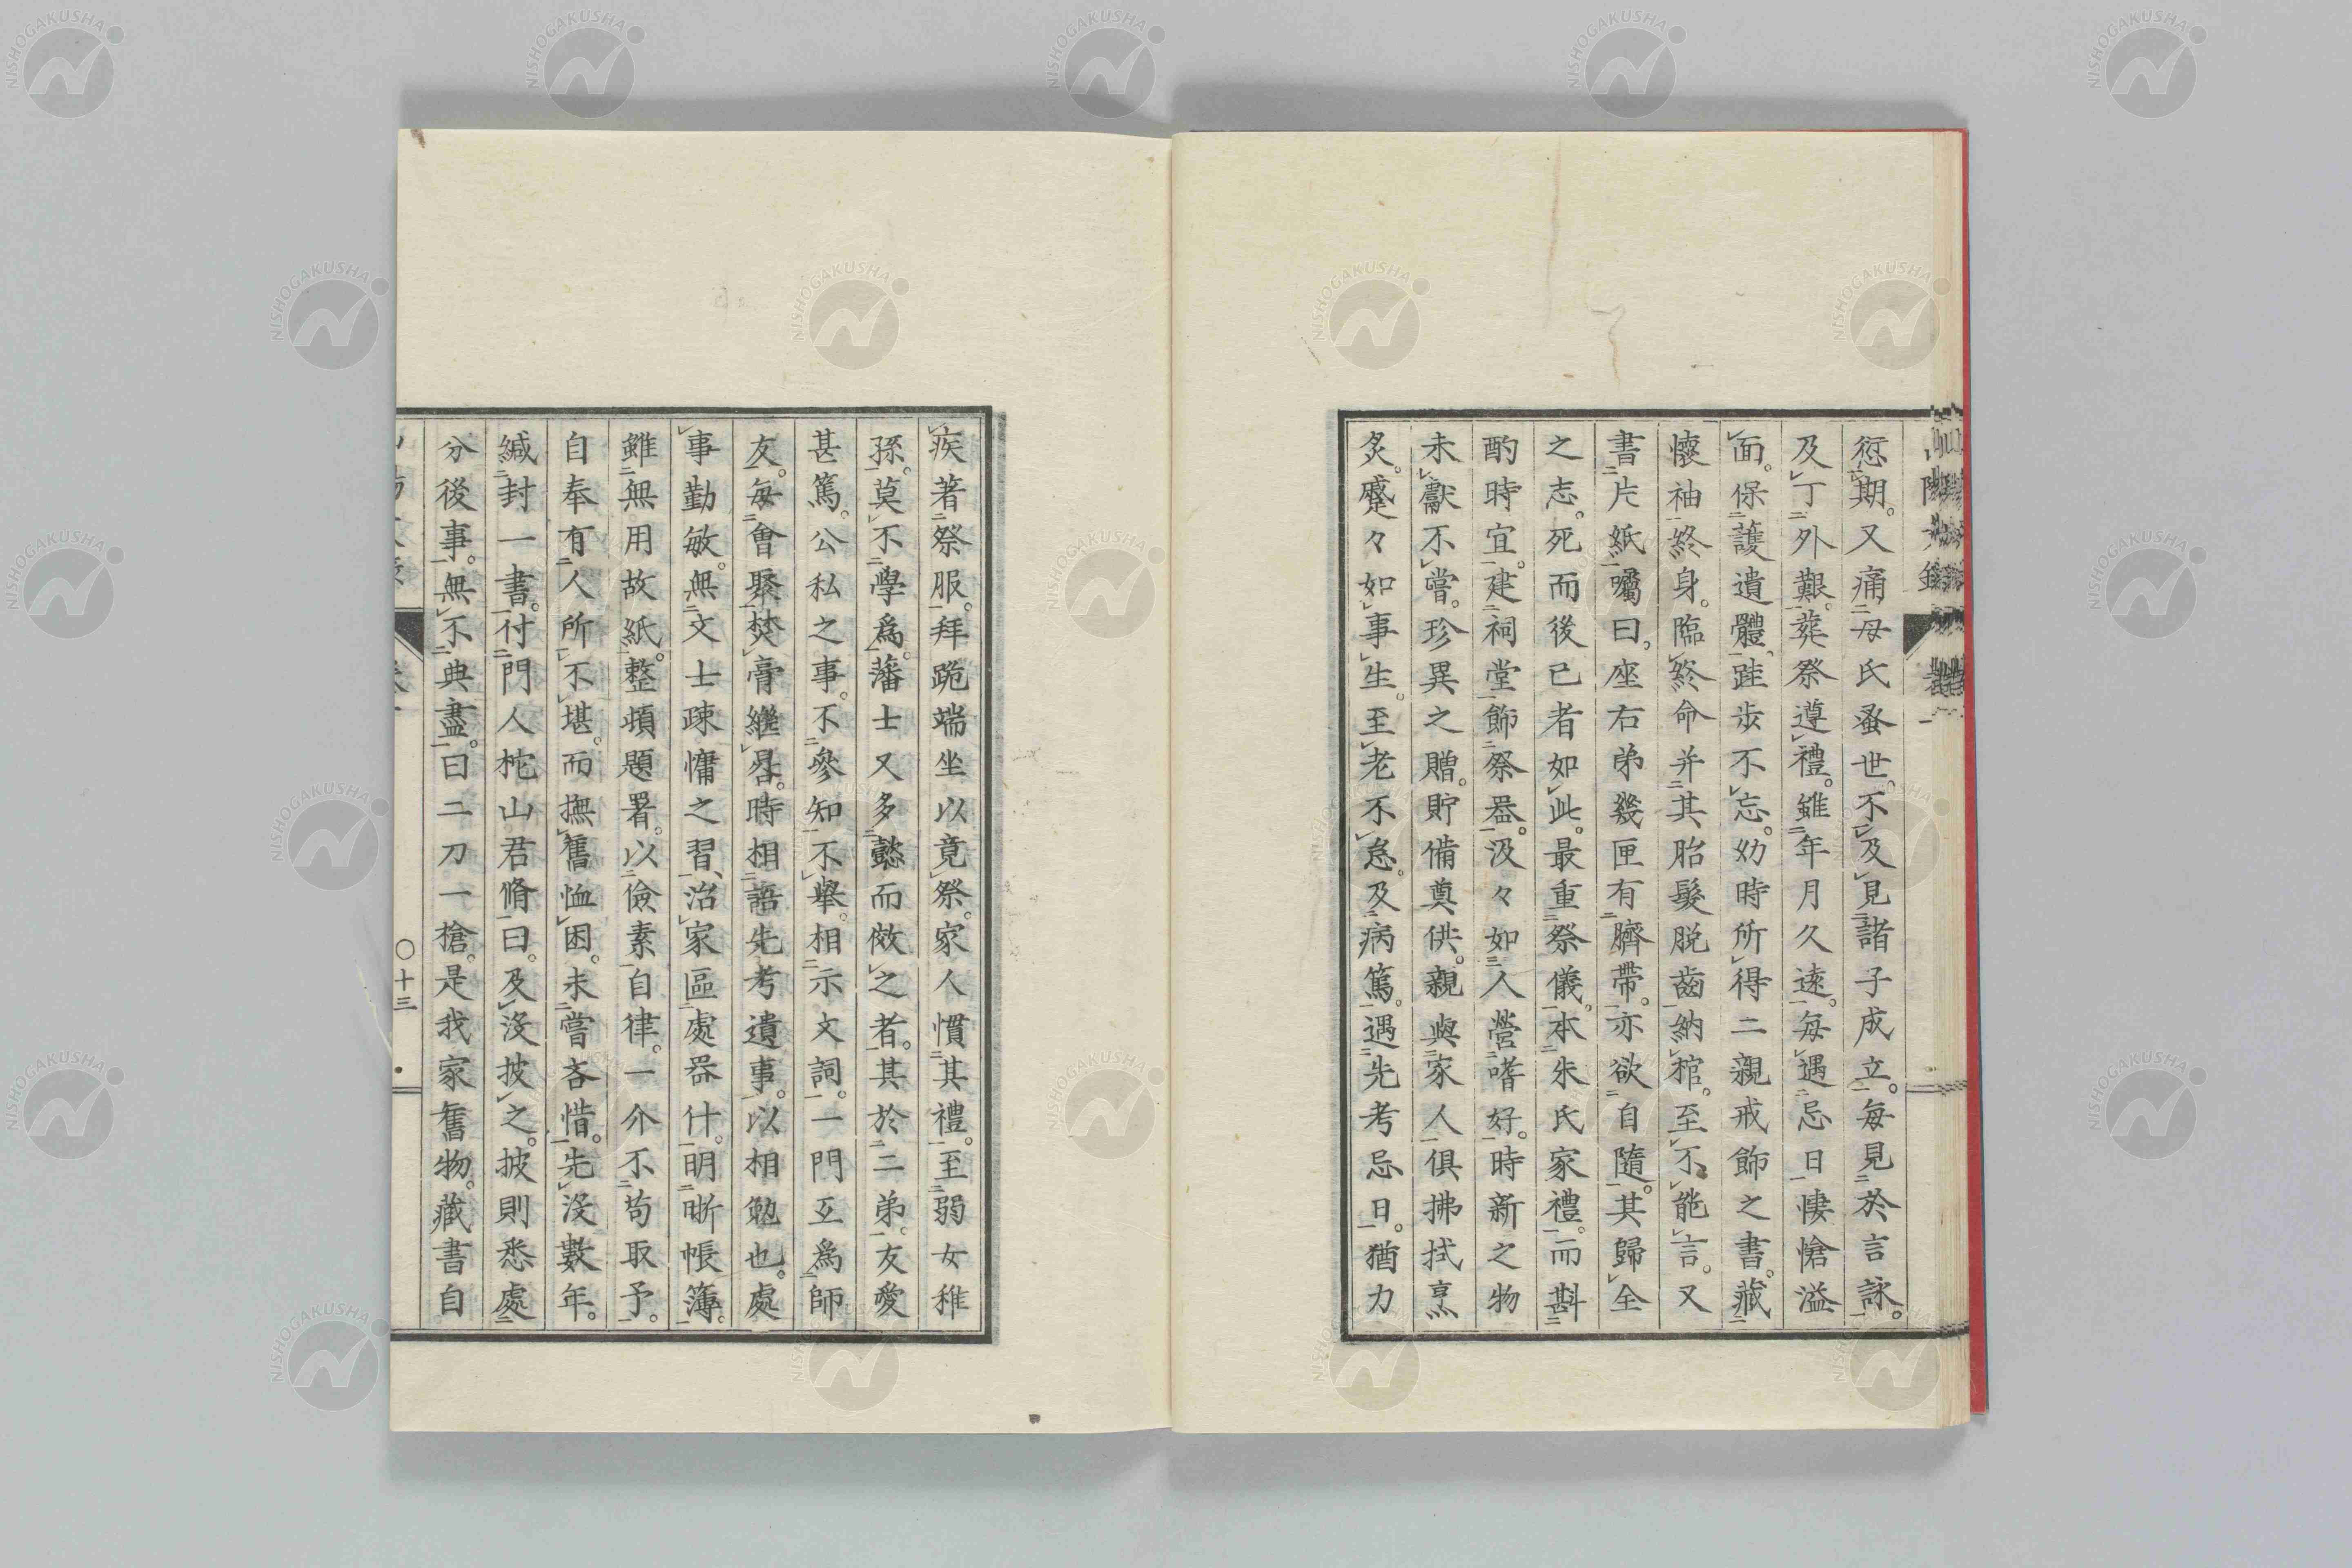 愆期。又痛母氏蚤世。不及見諸子成立。每見於言詠。
及丁外艱。葬祭遵禮。雖年月久遠。每遇忌日悽愴溢
面。保護遺體。跬步不忘。幼時所得二親戒飾之書。藏
懷袖終身。臨終命并其胎髮脱齒納棺。至不能言。又
書片紙囑曰。座右弟幾匣有臍帶。亦欲自隨。其歸全
之志。死而後已者如此。最重祭儀。本朱氏家禮。而斟
酌時宜。建祠堂飾祭噐。汲々如人營嗜好。時新之物
未獻不嘗。珍異之贈。貯備奠供。親與家人俱拂拭烹
炙。蹙々如事生。至老不怠。及病篤。遇先考忌日。猶力
疾著祭服。拜跪端坐以竟祭。家人慣其禮。至弱女稚
孫。莫不學為。藩士又多懿而傚之者。其於二弟。友愛
甚篤。公私之事。不參知不舉。相示文詞。一門互為師
友。每會聚焚膏繼晷。時相語先考遺事。以相勉也。處
事勤敏。無文士疎慵之習、治家區處器什。明晰帳簿。
雖無用故紙。整頓題署。以儉素自律。一介不苟取予。
自奉有人所不堪。而撫舊恤困。未嘗吝惜。先沒數年。
緘封一書。付門人柁山君脩曰。及沒披之。披則悉處
分後事。無不典盡。曰二刀一槍。是我家舊物。藏書自
〇十三
NISHOGAKUSHA